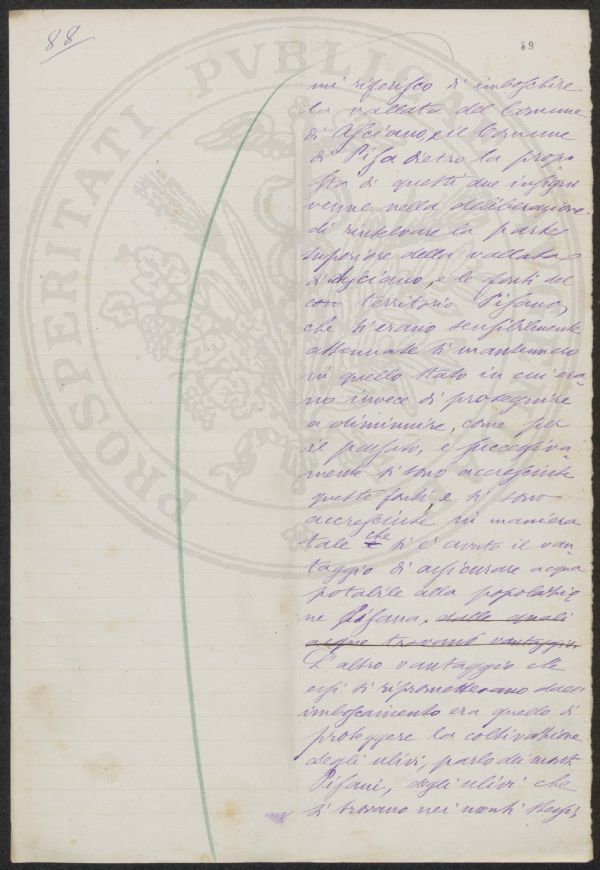 88
89
PROSPERITATI PVBLICAE
mi riferisco di imboschire
la vallata del Comune
di Asciano, e il Comune
di Pisa dietro la propo
sta di questi due insigni
venne nella deliberazione
di rinselvare la parte
superiore della vallata
di Asciano, e le fonti del
territorio Pisano,
che si erano sensibilmente
attenuate si mantennero
in quello stato in cui era
no invece di proseguire
a diminuire, come per
il passato, e successiva
mente si sono accresciute
queste fonti, e si sono
accresciute in maniera
tale che si è avuto il van
taggio di assicurare acqua
potabile alla popolazio
ne Pisana, dalle quali
acque trovansi vantaggio
L'altro vantaggio che
essi si ripromettevano dall'
imboscamento era quello di
proteggere la coltivazione
degli ulivi, parlo dei monti
Pisani, degli ulivi che
si trovano nei monti stessi,